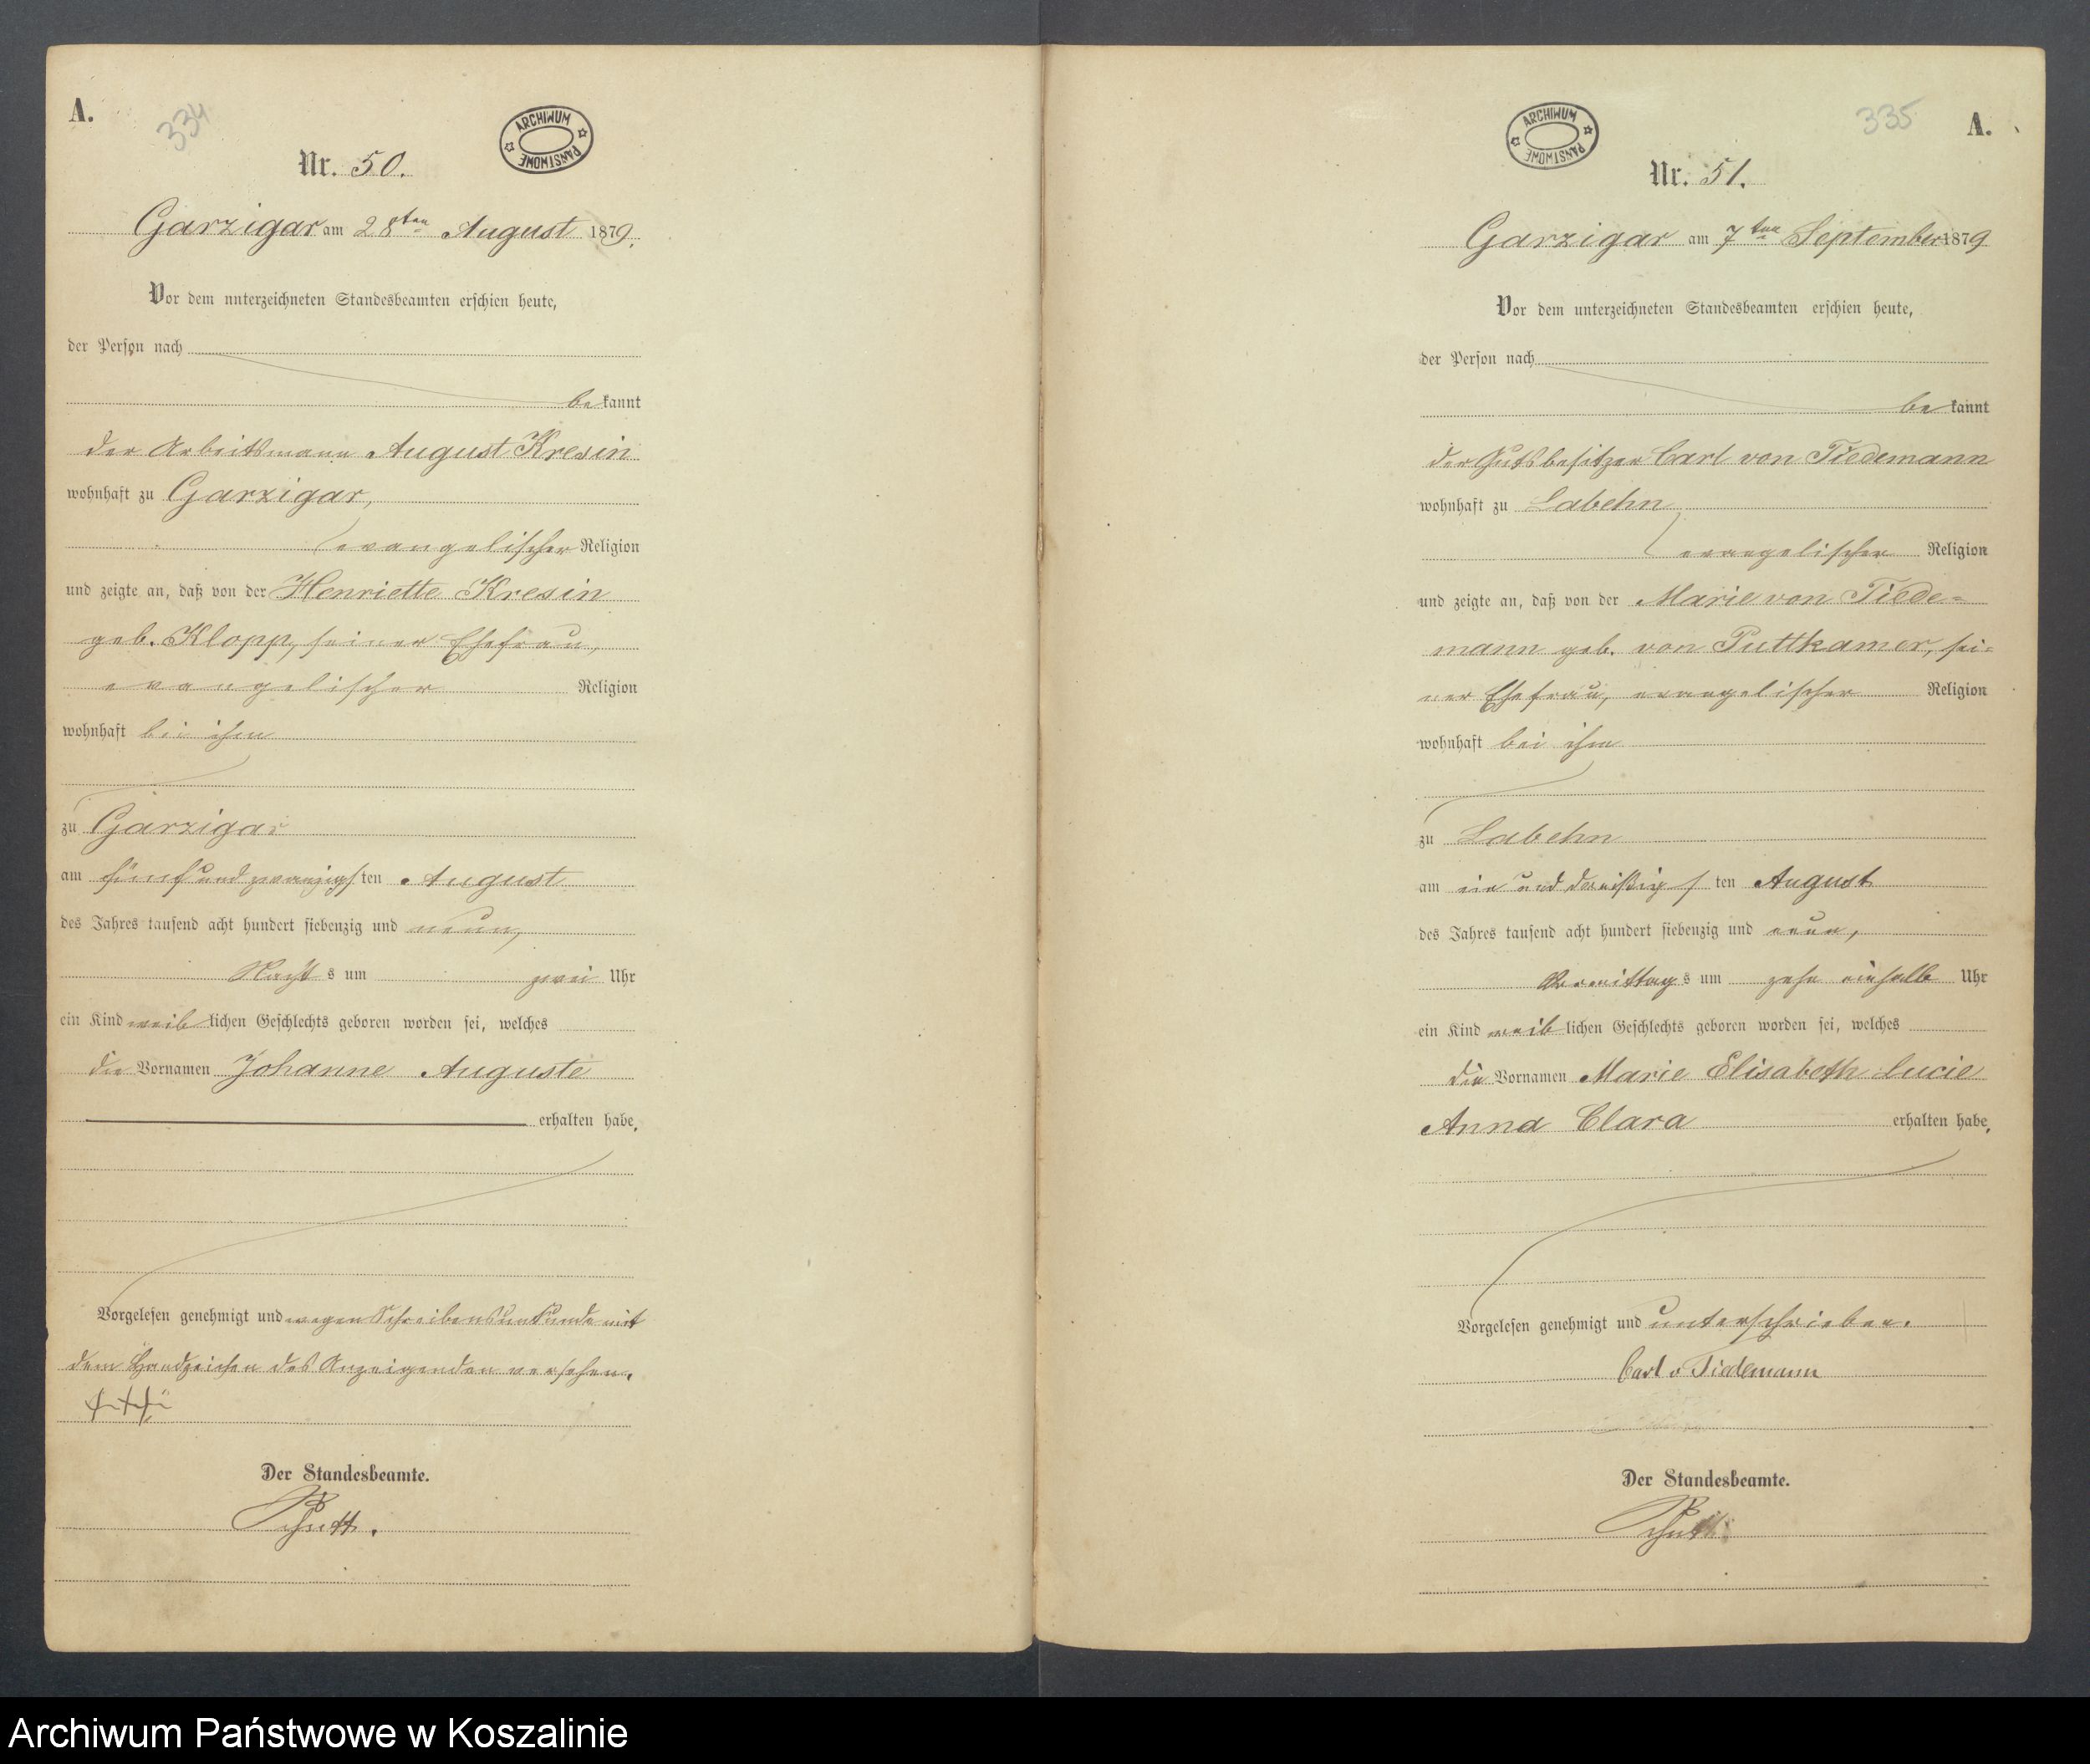 A.
334
ARCHIWUM PAŃSTWOWE
Nr. 50.
Garzigar am 28ten August 1879.
Vor dem unterzeichneten Standesbeamten erschien heute,
der Person nach
be kannt
der Arbeitsmann August Kresin
wohnhaft zu Garzigar,
evangelischer Religion
und zeigte an, daß von der Henriette Kresin
geb. Klopp, seiner Ehefrau,
evangelischer Religion
wohnhaft bei ihm
zu Garzigar
am fünf und zwanzigs ten August
des Jahres tausend acht hundert siebenzig und neun,
Nacht s um zwei Uhr
ein Kind weib lichen Geschlechts geboren worden sei, welches
die Vornamen Johanne Auguste
erhalten habe.
Vorgelesen genehmigt und wegen Schreibensunkunde mit
dem Handzeichen des Anzeigenden versehen.
Der Standesbeamte.
335
A.
ARCHIWUM PAŃSTWOWE
Nr. 51.
Garzigar am 7ten September 1879
Vor dem unterzeichneten Standesbeamten erschien heute,
der Person nach
be kannt
der Gutsbesitzer Carl von Tiedemann
wohnhaft zu Labehn
evangelischer Religion
und zeigte an, daß von der Marie von Tiede=
mann geb. von Puttkamer, sei=
ner Ehefrau, evangelischer Religion
wohnhaft bei ihm
zu Labehn
am ein und dreißigs ten August
des Jahres tausend acht hundert siebenzig und neun,
Vormittag s um zehn einhalb Uhr
ein Kind weib lichen Geschlechts geboren worden sei, welches
die Vornamen Marie Elisabeth Lucie
Anna Clara erhalten habe.
Vorgelesen genehmigt und unterschrieben.
Carl v Tiedemann
Der Standesbeamte.
Archiwum Państwowe w Koszalinie